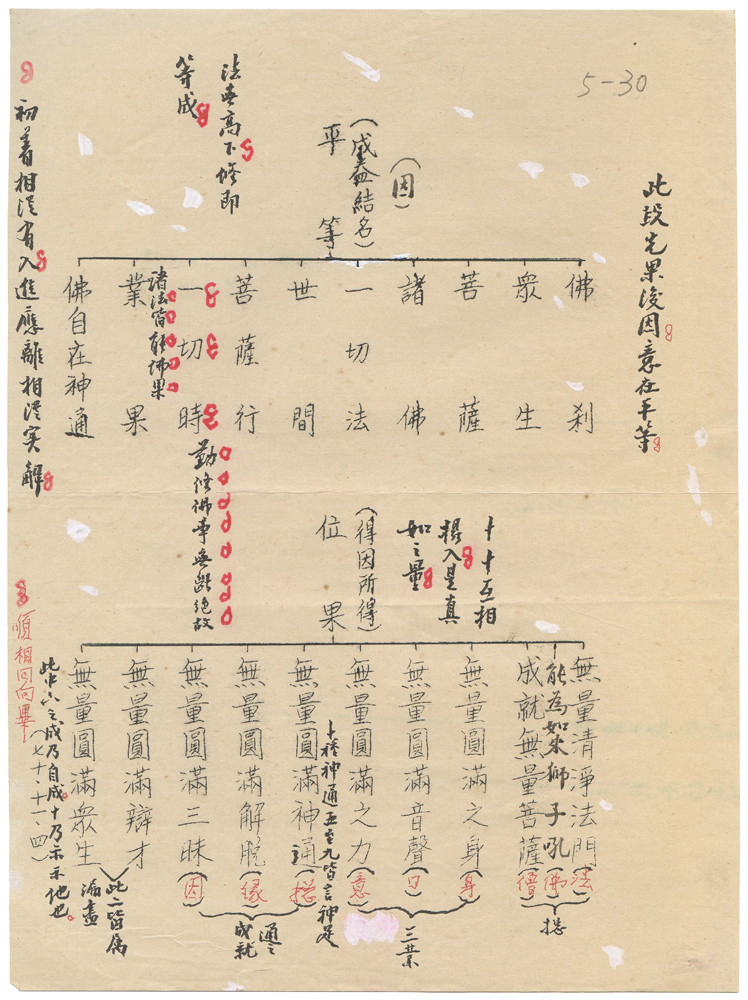 5-30
此段先果後因意在平等
(因)
(成益結名)
平等
法無高下修即
等成
佛剎
眾生
菩薩
諸佛
一切法
世間
菩薩行
一切時
勤修佛事無斷絕故
諸法皆能佛果
業果
佛自在神通
初著相從有入進應離相從實解
十十互相
攝入是真
如之量
(得因所得)
位果
無量清淨法門(法)
能為如來獅子吼(佛)
成就無量菩薩(僧)
總
無量圓滿之身(身)
無量圓滿音聲(口)
無量圓滿之力(意)
三業
無量圓滿神通(總)
十種神通五至九皆言神足
無量圓滿解脫(緣)
無量圓滿三昧(因)
通之
成就
無量圓滿辯才
無量圓滿眾生
此二皆為
漏盡
此中六之成乃自成十乃示未他也
(七十、十一、四)
順相回向畢